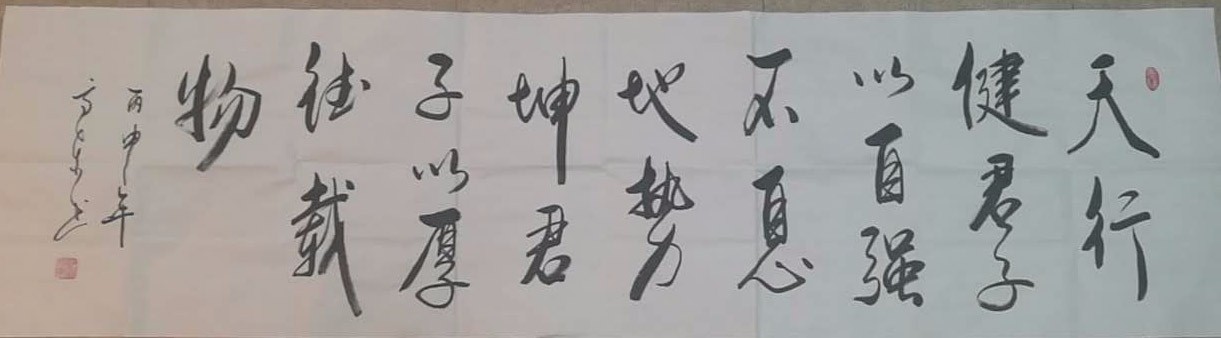 天行
健君子
以自强
不息
地势
坤君
子以厚
德载
物
丙申年